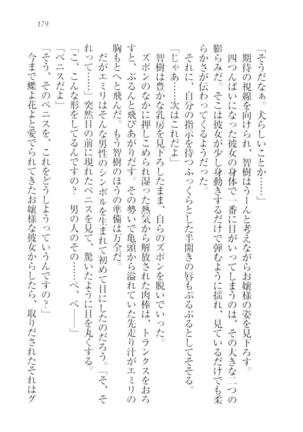 179
「そうだなぁ。犬らしいことか……」
期待の視線を向けられ、智樹はうーんと考えながらお嬢様の姿を見下ろす。
四つんばいになった彼女の身体で一番に目がいってしまうのは、その大きな二つの
膨らみだ。そこは彼女が少し身動きするだけで弾むように揺れ、見ているだけでも柔
らかさが伝わってくるようだ。
それに、自分の指示を待つふっくらとした半開きの唇もぷるぷるとそそる。
「じゃあ……次はこれだよ」
智樹は豊かな乳房を見下ろしたまま、自らのズボンを脱いでいった。
ズボンのなかに押しこめられ湿った熱気から解放された肉棒は、トランクスをおろ
すと、ぶるんと飛びあがりだす。その勢いで亀頭から溢れていた先走り汁がエミリの
胸もとへと飛んだ。もう智樹のほうの準備は万全だ。
だがエミリはそんな男性のシンボルを生まれて初めて目にしたのだろう。「そ、そ
れって……」突然目の前に現れたペニスを見て、驚いたように目を丸くする。
「こ、こんな形をしてるんですの？　男の人のその……ペ、ペ――」
「ペニスだよ」
「そう、そのペニスを、これをどうしようっていうんですの？」
今まで蝶よ花よと愛でられてきたお嬢様な彼女からしたら、取りだされたそれはグ